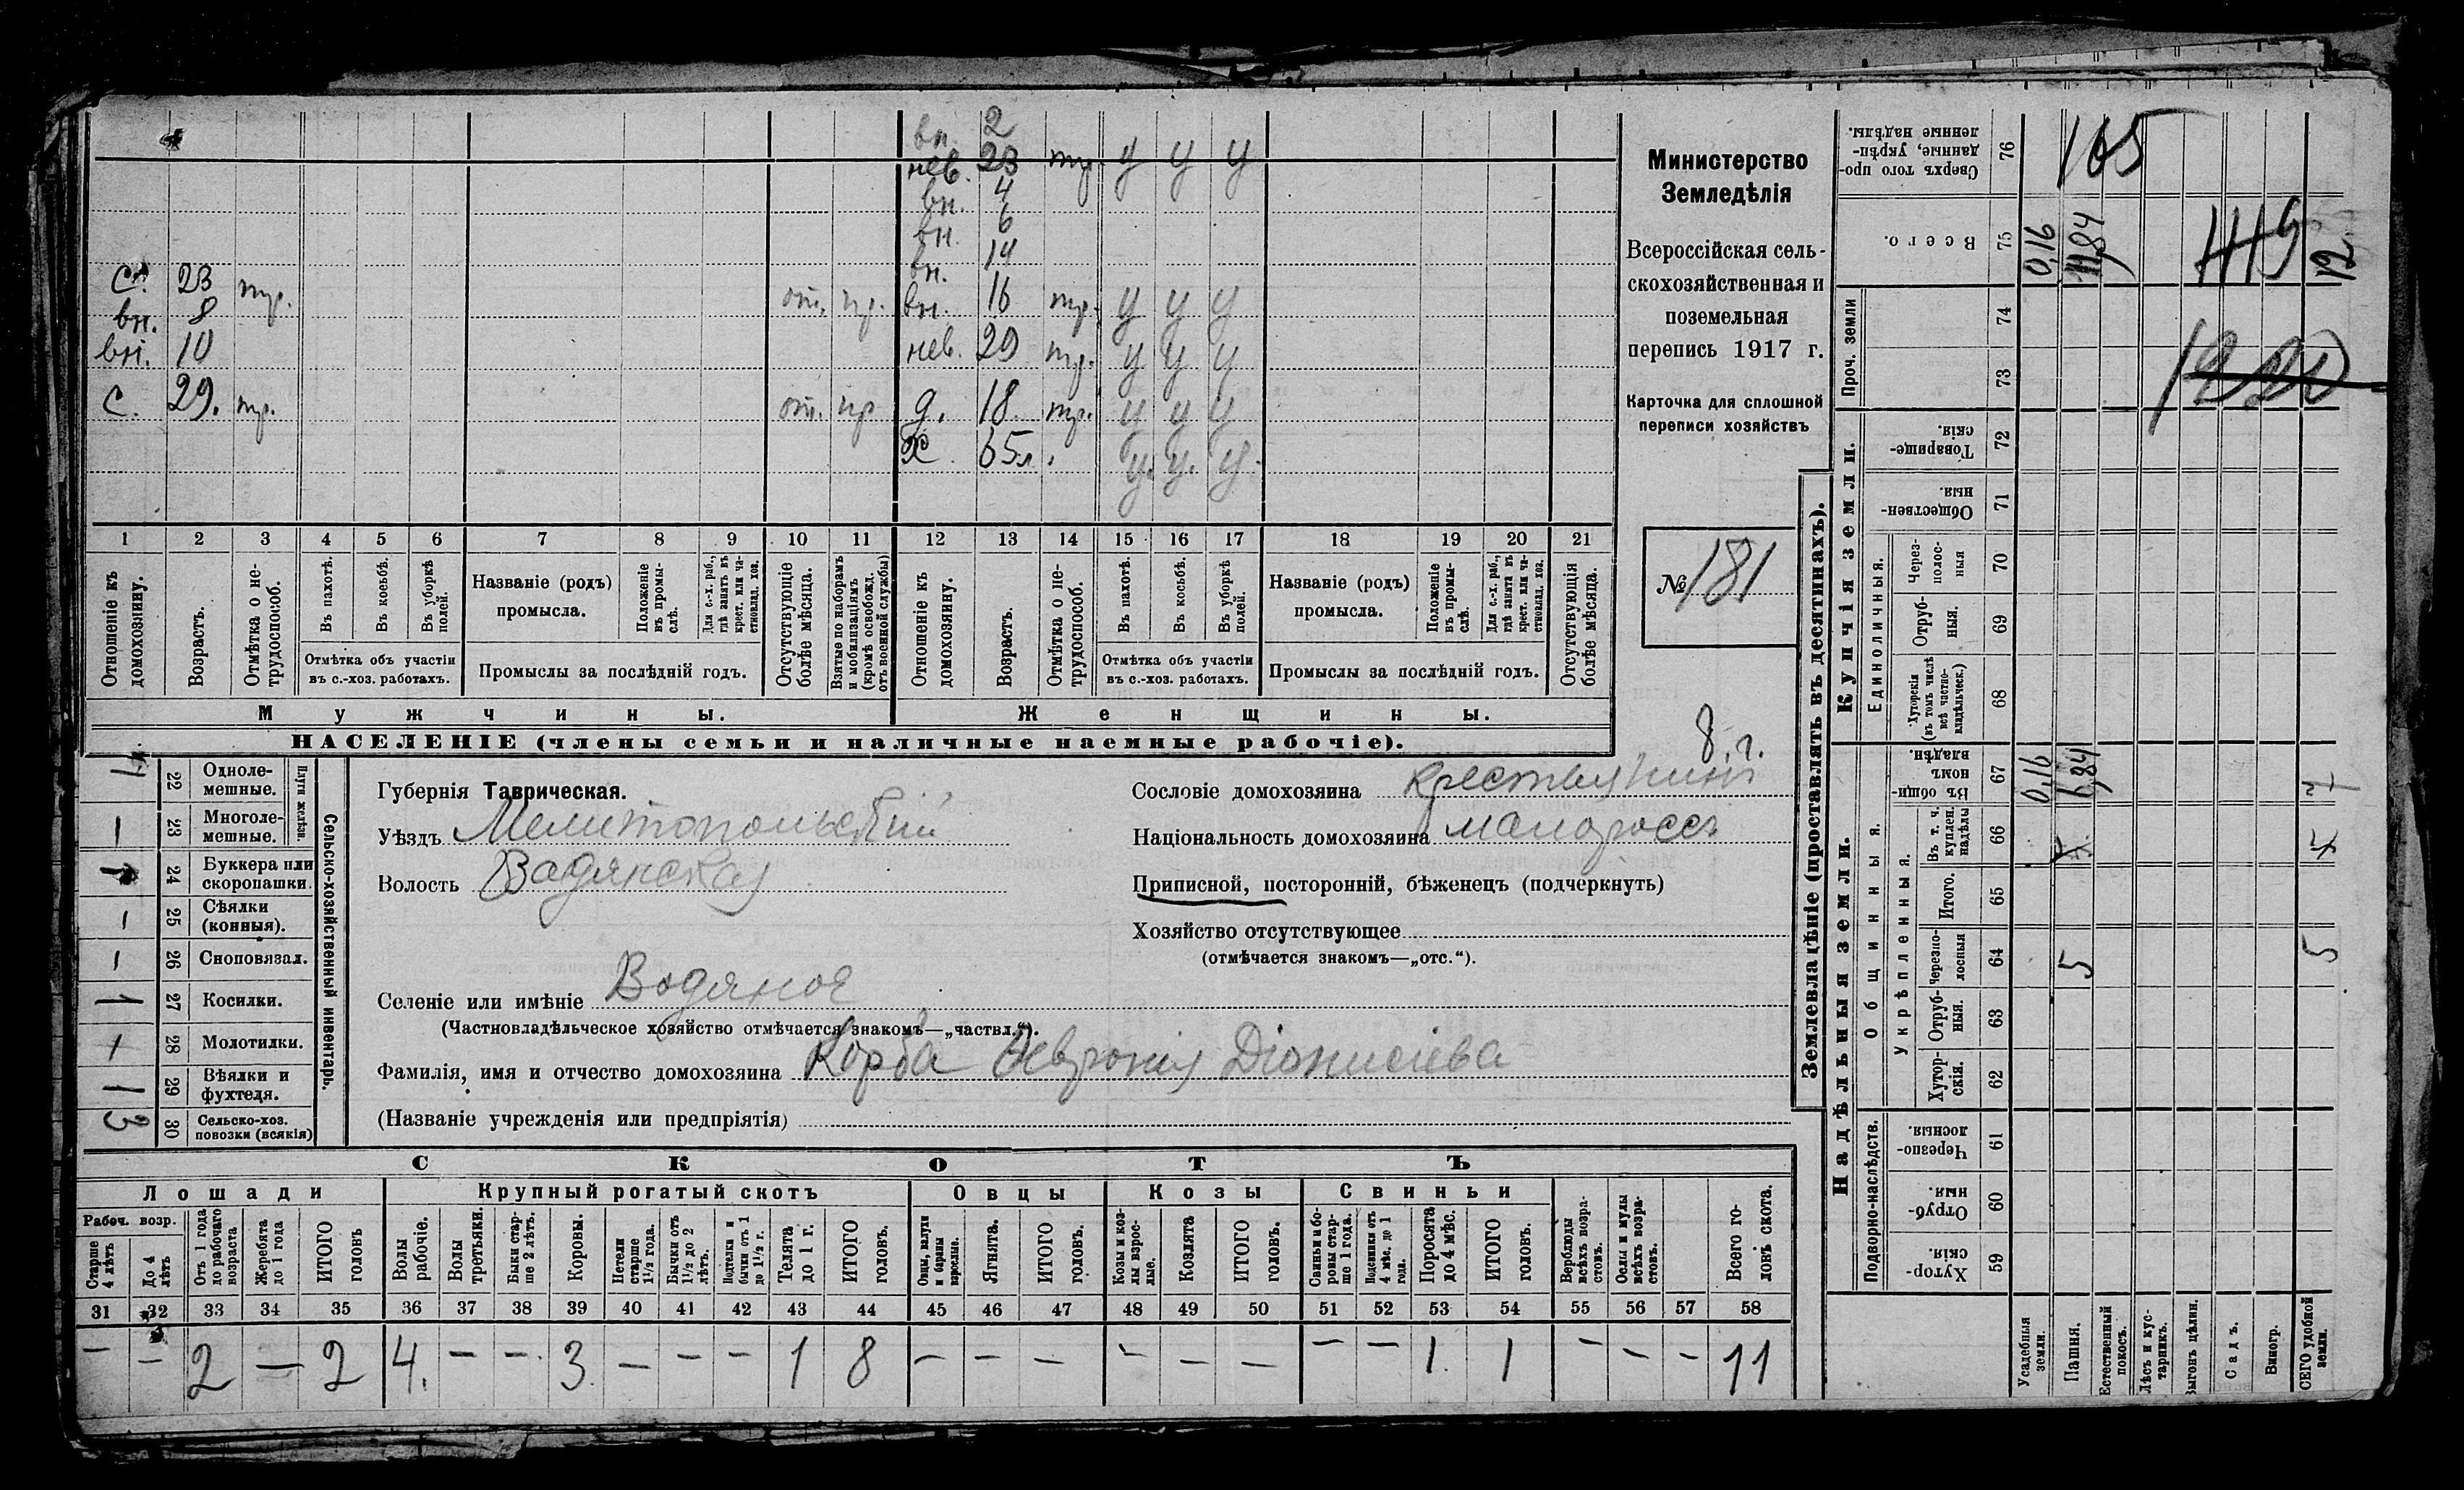 вн. 2
нев. 23 тр. у у у
вн. 4
вн. 6
вн. 14
с. 23 тр. от. пр. вн. 16 тр. у у у
вн. 8
вн. 10 нев. 29 тр. у у у
с. 29. тр. от. пр д. 18 тр. у у у
х 65 л. у. у. у.
1 2 3 4 5 6 7 8 9 10 11 12 13 14 15 16 17 18 19 20 21
Отношеніе къ домохозяину.
Возрастъ.
Отмѣтка о не-трудоспособ.
Въ пахотѣ.
Въ косьбѣ.
Въ уборкѣ полей.
Отмѣтка объ участіи
въ с.-хоз. работахъ.
Названіе (родъ)
промысла.
Положеніе въ промы-слѣ.
Для с.-х. раб., гдѣ занятъ въ крест. или ча-стновлад. хоз.
Промыслы за послѣдній годъ.
Отсутствующіе болѣе мѣсяца.
Взятые по наборамъ и мобилизаціямъ (кромѣ освобожд. отъ военной службы)
Отношеніе къ домохозяину.
Возрастъ.
Отмѣтка о не-трудоспособ.
Въ пахотѣ.
Въ косьбѣ.
Въ уборкѣ полей.
Отмѣтка объ участіи
въ с.-хоз. работахъ.
Названіе (родъ)
промысла.
Положеніе въ промы-слѣ.
Для с.-х. раб., гдѣ занята въ крест. или ча-стновлад. хоз.
Промыслы за послѣдній годъ.
Отсутствующія болѣе мѣсяца.
Мужчины.
Женщины.
НАСЕЛЕНІЕ (члены семьи и наличные наемные рабочіе).
Министерство
Земледѣлія
Всероссійская сель-
скохозяйственная и
поземельная
перепись 1917 г.
Карточка для сплошной
переписи хозяйствъ
№ 181
8. г.
Сельско-хозяйственный инвентарь.
Плуги желѣзн.
22 Одноле-мешные. 1
23 Многоле-мешные. —
24 Буккера или скоропашки. 1
25 Сѣялки (конныя). —
26 Сноповязал. —
27 Косилки. 1
28 Молотилки. —
29 Вѣялки и фухтеля. 1
30 Сельско-хоз. повозки (всякія) 3
Губернія Таврическая.
Уѣздъ Мелитопольскій
Волость Водянская
Сословіе домохозяина крестьянинъ
Національность домохозяина малороссъ
Приписной, посторонній, бѣженецъ (подчеркнуть)
Хозяйство отсутствующее
(отмѣчается знакомъ—„отс.“).
Селеніе или имѣніе Водяное
(Частновладѣльческое хозяйство отмѣчается знакомъ—„частвл.“).
Фамилія, имя и отчество домохозяина Корба Февронія Діонисіева
(Названіе учрежденія или предпріятія)
СКОТЪ
Лошади Крупный рогатый скотъ Овцы Козы Свиньи
Рабоч. возр.
Старше 4 лѣтъ
До 4 лѣтъ
Отъ 1 года до рабочаго возраста
Жеребята до 1 года
ИТОГО головъ
Волы рабочіе.
Волы третьяки.
Быки стар-ше 2 лѣтъ.
Коровы.
Нетели старше 1½ года.
Бычки отъ 1½ до 2 лѣтъ.
Подтелки и бычки отъ 1 до 1½ г.
Телята до 1 г.
ИТОГО головъ.
Овцы, валухи и бараны взрослые.
Ягнята.
ИТОГО головъ.
Козы и коз-лы взрос-лые.
Козлята
ИТОГО головъ.
Свиньи и бо-ровы стар-ше 1 года.
Подсвинки отъ 4 мѣс. до 1 года.
Поросята до 4 мѣс.
ИТОГО головъ.
Верблюды всѣхъ возра-стовъ.
Ослы и мулы всѣхъ возра-стовъ.
Всего го-ловъ скота.
31 32 33 34 35 36 37 38 39 40 41 42 43 44 45 46 47 48 49 50 51 52 53 54 55 56 57 58
— — 2 — 2 4. — — 3 — — — 1 8 — — — — — — — — 1 1 — — — 11
Землевладѣніе (проставлять въ десятинахъ).
Надѣльныя земли.
Купчія земли.
Проч. земли
Подворно-наслѣдств.
Общинныя.
Укрѣпленныя.
Единоличныя.
Сверхъ того про-данные, укрѣп-ленные надѣлы. 76 165
Всего. 75 0,16 11,84 12
74
73 1220
Товарище-скія. 72
Обществен-ныя. 71
Через-полос-ныя 70
Отруб-ныя. 69
Хуторскія (въ томъ числѣ всѣ частно-владѣльческ.) 68
Въ общи-номъ владѣн. 67 0,16 6,84 7
Въ т. ч. куплен. надѣлы 66
Итого. 65
Черезпо-лосныя 64 5 5
Отруб-ныя. 63
Хутор-скія. 62
Черезпо-лосныя. 61
Отруб-ныя. 60
Хутор-скія. 59
Усадебныя земли.
Пашня.
Естественный покосъ.
Лѣсъ и кус-тарникъ.
Выгонъ цѣлин.
Садъ.
Виногр.
ВСЕГО удобной земли.